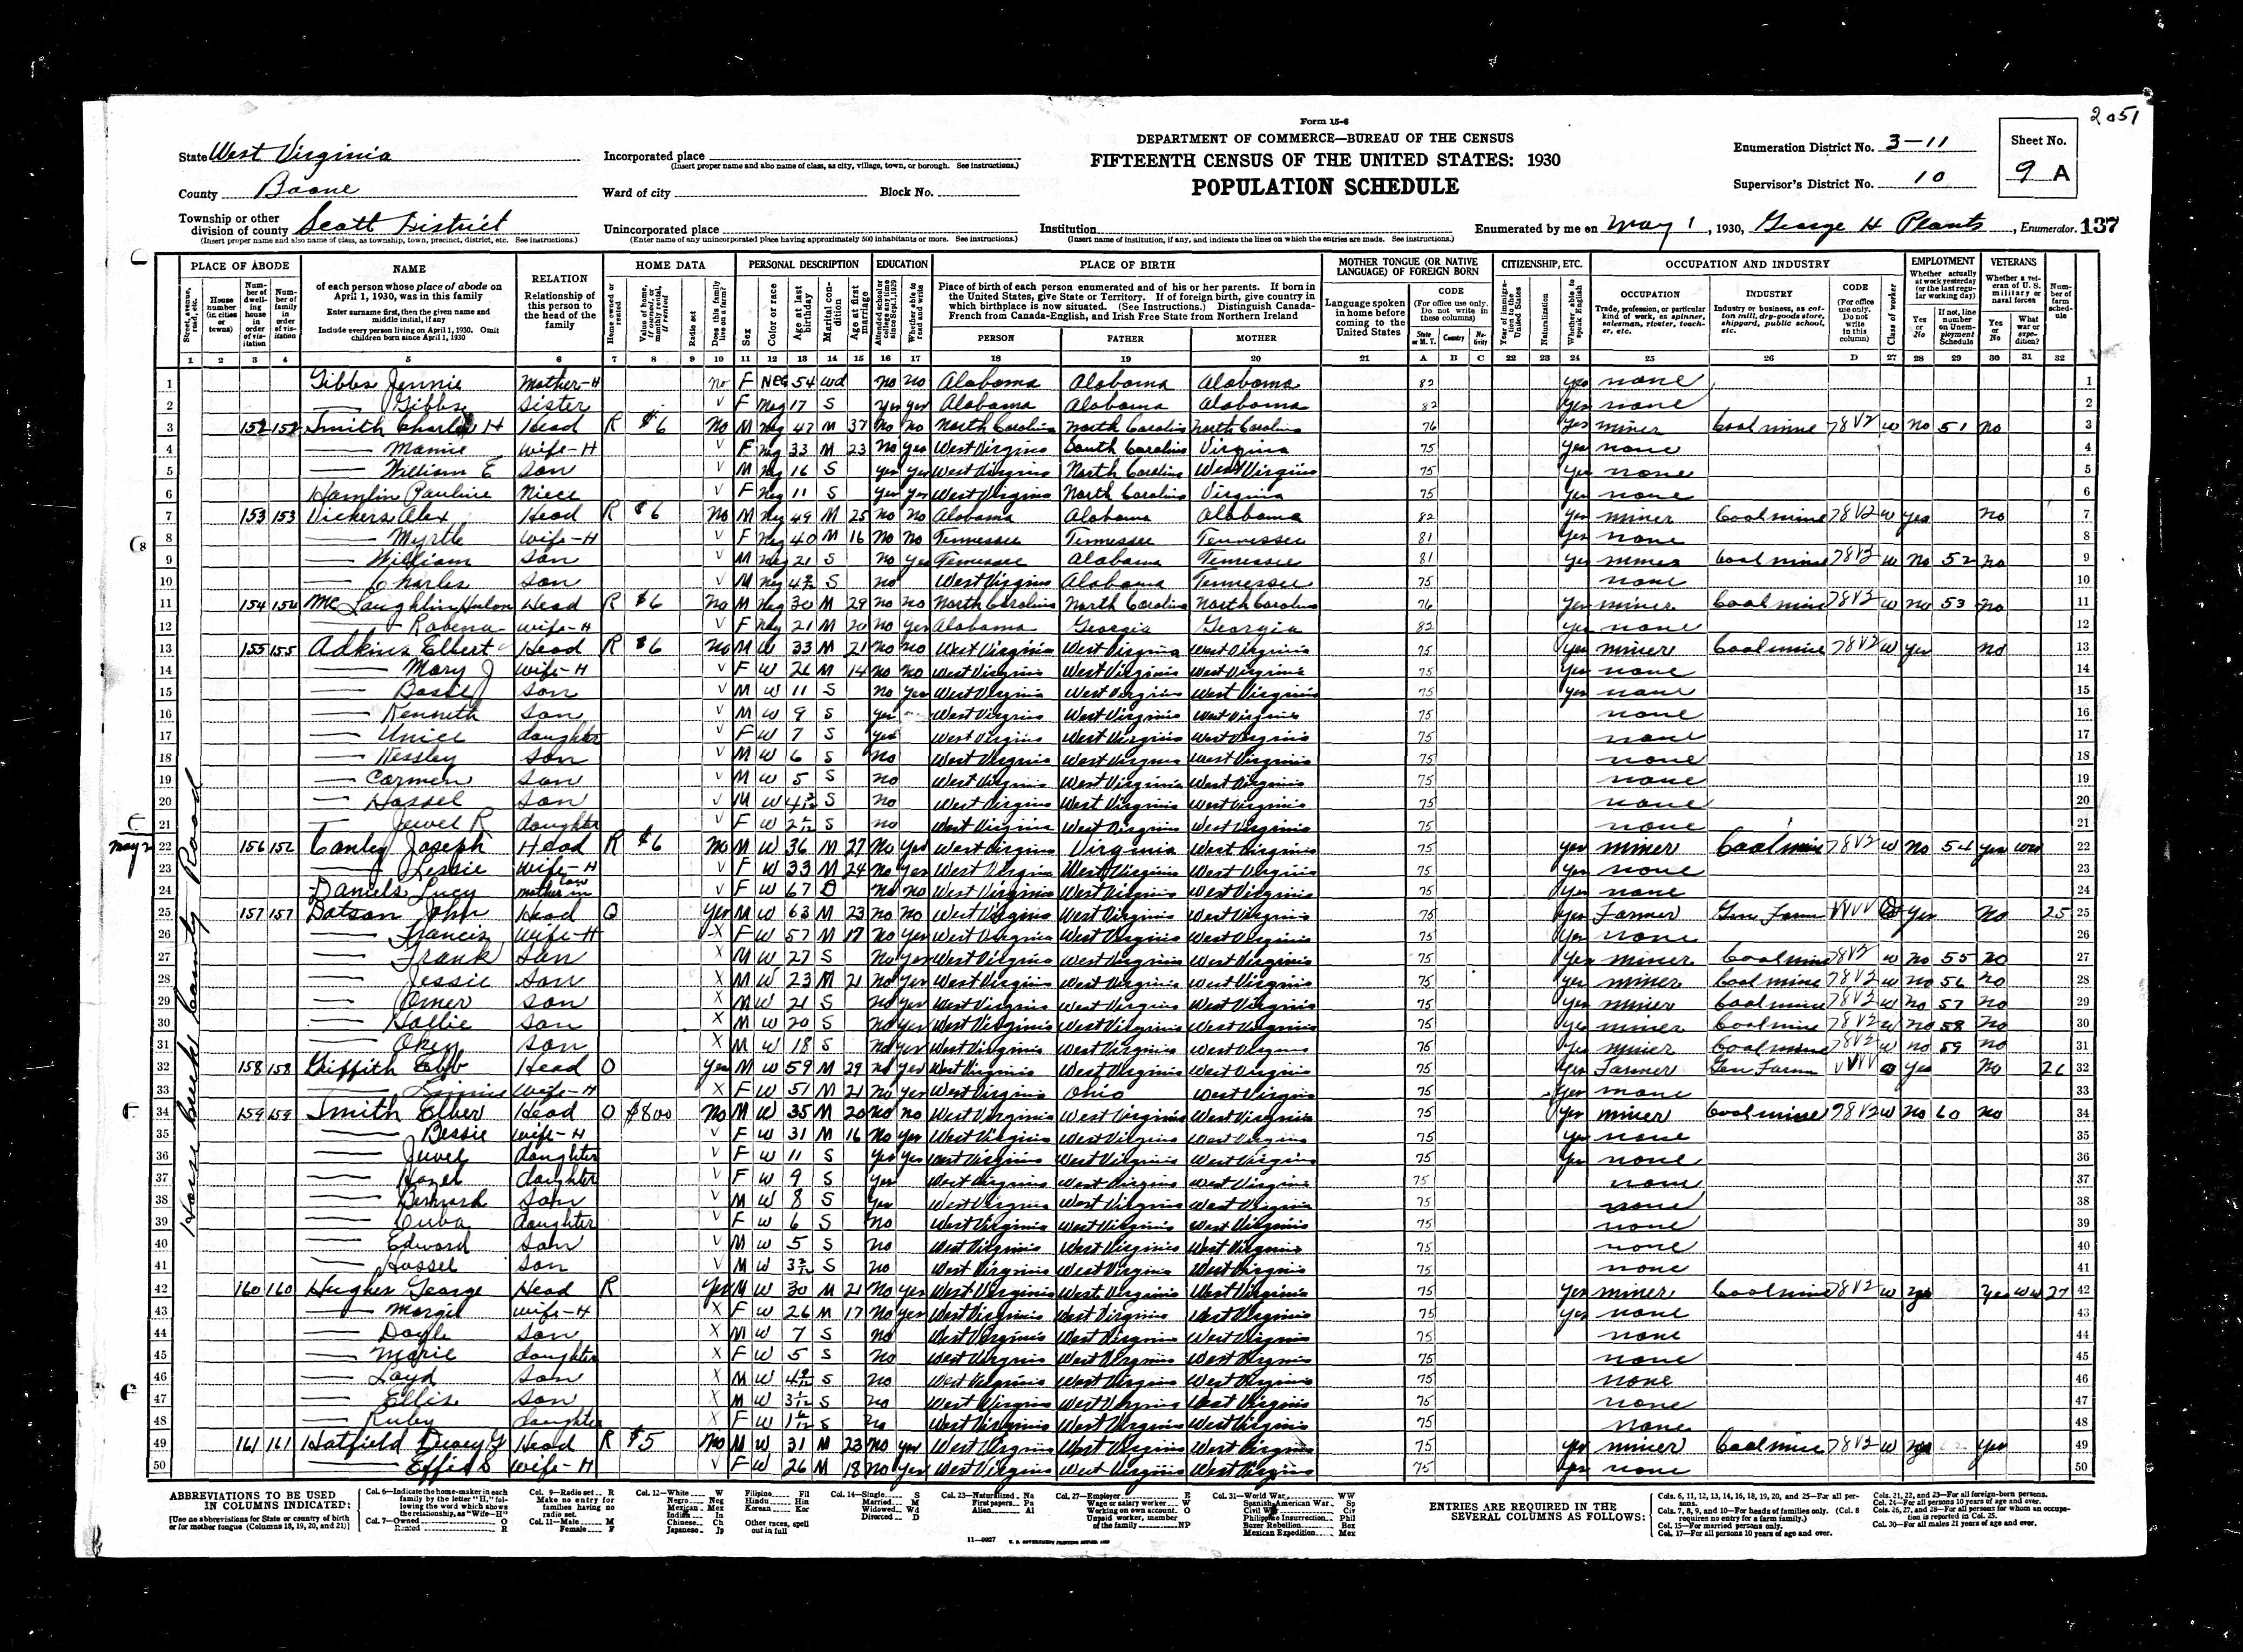 2051
Form 15-6
DEPARTMENT OF COMMERCE—BUREAU OF THE CENSUS
FIFTEENTH CENSUS OF THE UNITED STATES: 1930
POPULATION SCHEDULE
State West Virginia
County Boone
Township or other division of county Scott District
(Insert proper name and also name of class, as township, town, precinct, district, etc. See instructions.)
Incorporated place
(Insert proper name and also name of class, as city, village, town, or borough. See instructions.)
Ward of city Block No.
Unincorporated place
(Enter name of any unincorporated place having approximately 500 inhabitants or more. See instructions.)
Institution
(Insert name of institution, if any, and indicate the lines on which the entries are made. See instructions.)
Enumeration District No. 3-11
Supervisor's District No. 10
Sheet No. 9 A
Enumerated by me on May 1, 1930, George H Plants, Enumerator. 137
PLACE OF ABODE NAME RELATION HOME DATA PERSONAL DESCRIPTION EDUCATION PLACE OF BIRTH MOTHER TONGUE (OR NATIVE LANGUAGE) OF FOREIGN BORN CITIZENSHIP, ETC. OCCUPATION AND INDUSTRY EMPLOYMENT VETERANS
of each person whose place of abode on April 1, 1930, was in this family
Enter surname first, then the given name and middle initial, if any
Include every person living on April 1, 1930. Omit children born since April 1, 1930
Relationship of this person to the head of the family
Place of birth of each person enumerated and of his or her parents. If born in the United States, give State or Territory. If of foreign birth, give country in which birthplace is now situated. (See Instructions.) Distinguish Canada-French from Canada-English, and Irish Free State from Northern Ireland
PERSON FATHER MOTHER
Language spoken in home before coming to the United States
CODE (For office use only. Do not write in these columns)
OCCUPATION Trade, profession, or particular kind of work, as spinner, salesman, riveter, teacher, etc.
INDUSTRY Industry or business, as cotton mill, dry-goods store, shipyard, public school, etc.
1 2 3 4 5 6 7 8 9 10 11 12 13 14 15 16 17 18 19 20 21 A B C 22 23 24 25 26 D 27 28 29 30 31 32
House Creek County Road
1 Gibbs Jennie Mother-H No F Neg 54 Wd No No Alabama Alabama Alabama 82 Yes none
2 — Gibbs Sister V F Neg 17 S Yes Yes Alabama Alabama Alabama 82 Yes none
3 152 152 Smith Charles H Head R $6 No M Neg 47 M 37 No No North Carolina North Carolina North Carolina 76 Yes miner Coal mine 78V2 W No 51 No
4 — Mamie Wife-H V F Neg 33 M 23 No Yes West Virginia South Carolina Virginia 75 Yes none
5 — William E Son V M Neg 16 S Yes Yes West Virginia North Carolina West Virginia 75 Yes none
6 Hamlin Pauline Niece V F Neg 11 S Yes Yes West Virginia North Carolina Virginia 75 Yes none
7 153 153 Vickers Alex Head R $6 No M Neg 49 M 25 No No Alabama Alabama Alabama 82 Yes miner Coal mine 78V2 W Yes No
8 — Myrtle Wife-H V F Neg 40 M 16 No No Tennessee Tennessee Tennessee 81 Yes none
9 — William Son V M Neg 21 S No Yes Tennessee Alabama Tennessee 81 Yes miner Coal mine 78V2 W No 52 No
10 — Charles Son V M Neg S No West Virginia Alabama Tennessee 75 none
11 154 154 McLaughlin Head R $6 No M Neg 30 M 29 No No North Carolina North Carolina North Carolina 76 Yes miner Coal mine 78V2 W No 53 No
12 — Robena Wife-H V F Neg 21 M 20 No Yes Alabama Georgia Georgia 82 Yes none
13 155 155 Adkins Elbert Head R $6 No M W 33 M 21 No No West Virginia West Virginia West Virginia 75 Yes miner Coal mine 78V2 W Yes No
14 — Mary J Wife-H V F W 26 M 14 No No West Virginia West Virginia West Virginia 75 Yes none
15 — Son V M W 11 S No Yes West Virginia West Virginia West Virginia 75 Yes none
16 — Kenneth Son V M W 9 S Yes West Virginia West Virginia West Virginia 75 none
17 — Unice daughter V F W 7 S Yes West Virginia West Virginia West Virginia 75 none
18 — Son V M W 6 S No West Virginia West Virginia West Virginia 75 none
19 — Carmen Son V M W 5 S No West Virginia West Virginia West Virginia 75 none
20 — Hassel Son V M W S No West Virginia West Virginia West Virginia 75 none
21 — Jewel R daughter V F W S No West Virginia West Virginia West Virginia 75 none
May 2
22 156 156 Canley Joseph Head R $6 No M W 36 M 27 No Yes West Virginia Virginia West Virginia 75 Yes miner Coal mine 78V2 W No 54 Yes WW
23 — Lessie Wife-H V F W 33 M 24 No Yes West Virginia West Virginia West Virginia 75 Yes none
24 Daniels Lucy mother in law V F W 67 D No No West Virginia West Virginia West Virginia 75 Yes none
25 157 157 Dotson John Head O Yes M W 63 M 23 No No West Virginia West Virginia West Virginia 75 Yes Farmer Gen Farm VVVV O Yes No 25
26 — Francis Wife-H X F W 57 M 17 No Yes West Virginia West Virginia West Virginia 75 Yes none
27 — Frank Son X M W 27 S No Yes West Virginia West Virginia West Virginia 75 Yes miner Coal mine 78V2 W No 55 No
28 — Jessie Son X M W 23 M 21 No Yes West Virginia West Virginia West Virginia 75 Yes miner Coal mine 78V2 W No 56 No
29 — Omer Son X M W 21 S No Yes West Virginia West Virginia West Virginia 75 Yes miner Coal mine 78V2 W No 57 No
30 — Hollie Son X M W 20 S No Yes West Virginia West Virginia West Virginia 75 Yes miner Coal mine 78V2 W No 58 No
31 — Okey Son X M W 18 S No Yes West Virginia West Virginia West Virginia 75 Yes miner Coal mine 78V2 W No 59 No
32 158 158 Griffith Head O Yes M W 59 M 29 No Yes West Virginia West Virginia West Virginia 75 Yes Farmer Gen Farm VVVV O Yes No 26
33 — Wife-H X F W 51 M 21 No Yes West Virginia Ohio West Virginia 75 Yes none
34 159 159 Smith Elber Head O $800 No M W 35 M 20 No No West Virginia West Virginia West Virginia 75 Yes miner Coal mine 78V2 W No 60 No
35 — Bessie Wife-H V F W 31 M 16 No Yes West Virginia West Virginia West Virginia 75 Yes none
36 — Jewel daughter V F W 11 S Yes Yes West Virginia West Virginia West Virginia 75 Yes none
37 — Hazel daughter V F W 9 S Yes West Virginia West Virginia West Virginia 75 none
38 — Bernard Son V M W 8 S Yes West Virginia West Virginia West Virginia 75 none
39 — Cuba daughter V F W 6 S No West Virginia West Virginia West Virginia 75 none
40 — Edward Son V M W 5 S No West Virginia West Virginia West Virginia 75 none
41 — Hassel Son V M W S No West Virginia West Virginia West Virginia 75 none
42 160 160 Hughes George Head R Yes M W 30 M 21 No Yes West Virginia West Virginia West Virginia 75 Yes miner Coal mine 78V2 W Yes Yes WW 27
43 — Margie Wife-H X F W 26 M 17 No Yes West Virginia West Virginia West Virginia 75 Yes none
44 — Doyle Son X M W 7 S No West Virginia West Virginia West Virginia 75 none
45 — Marie daughter X F W 5 S No West Virginia West Virginia West Virginia 75 none
46 — Loyd Son X M W S No West Virginia West Virginia West Virginia 75 none
47 — Ellis Son X M W S No West Virginia West Virginia West Virginia 75 none
48 — Ruby daughter X F W S No West Virginia West Virginia West Virginia 75 none
49 161 161 Hatfield Head R $5 No M W 31 M 23 No Yes West Virginia West Virginia West Virginia 75 Yes miner Coal mine 78V2 W Yes
50 — Effie Wife-H V F W 26 M 18 No Yes West Virginia West Virginia West Virginia 75 Yes none
ABBREVIATIONS TO BE USED IN COLUMNS INDICATED:
[Use no abbreviations for State or country of birth or for mother tongue (Columns 18, 19, 20, and 21)]
Col. 6—Indicate the home-maker in each family by the letter "H," following the word which shows the relationship, as "Wife—H"
Col. 7—Owned O Rented R
Col. 9—Radio set R Make no entry for families having no radio set.
Col. 11—Male M Female F
Col. 12—White W Negro Neg Mexican Mex Indian In Chinese Ch Japanese Jp Filipino Fil Hindu Hin Korean Kor Other races, spell out in full
Col. 14—Single S Married M Widowed Wd Divorced D
Col. 23—Naturalized Na First papers Pa Alien Al
Col. 27—Employer E Wage or salary worker W Working on own account O Unpaid worker, member of the family NP
Col. 31—World War WW Spanish-American War Sp Civil War Civ Philippine Insurrection Phil Boxer Rebellion Box Mexican Expedition Mex
ENTRIES ARE REQUIRED IN THE SEVERAL COLUMNS AS FOLLOWS:
Cols. 6, 11, 12, 13, 14, 16, 18, 19, 20, and 25—For all persons.
Cols. 7, 8, 9, and 10—For heads of families only. (Col. 8 requires no entry for a farm family.)
Col. 15—For married persons only.
Col. 17—For all persons 10 years of age and over.
Cols. 21, 22, and 23—For all foreign-born persons.
Col. 24—For all persons 10 years of age and over.
Cols. 26, 27, and 28—For all persons for whom an occupation is reported in Col. 25.
Col. 30—For all males 21 years of age and over.
11—9927 U. S. GOVERNMENT PRINTING OFFICE